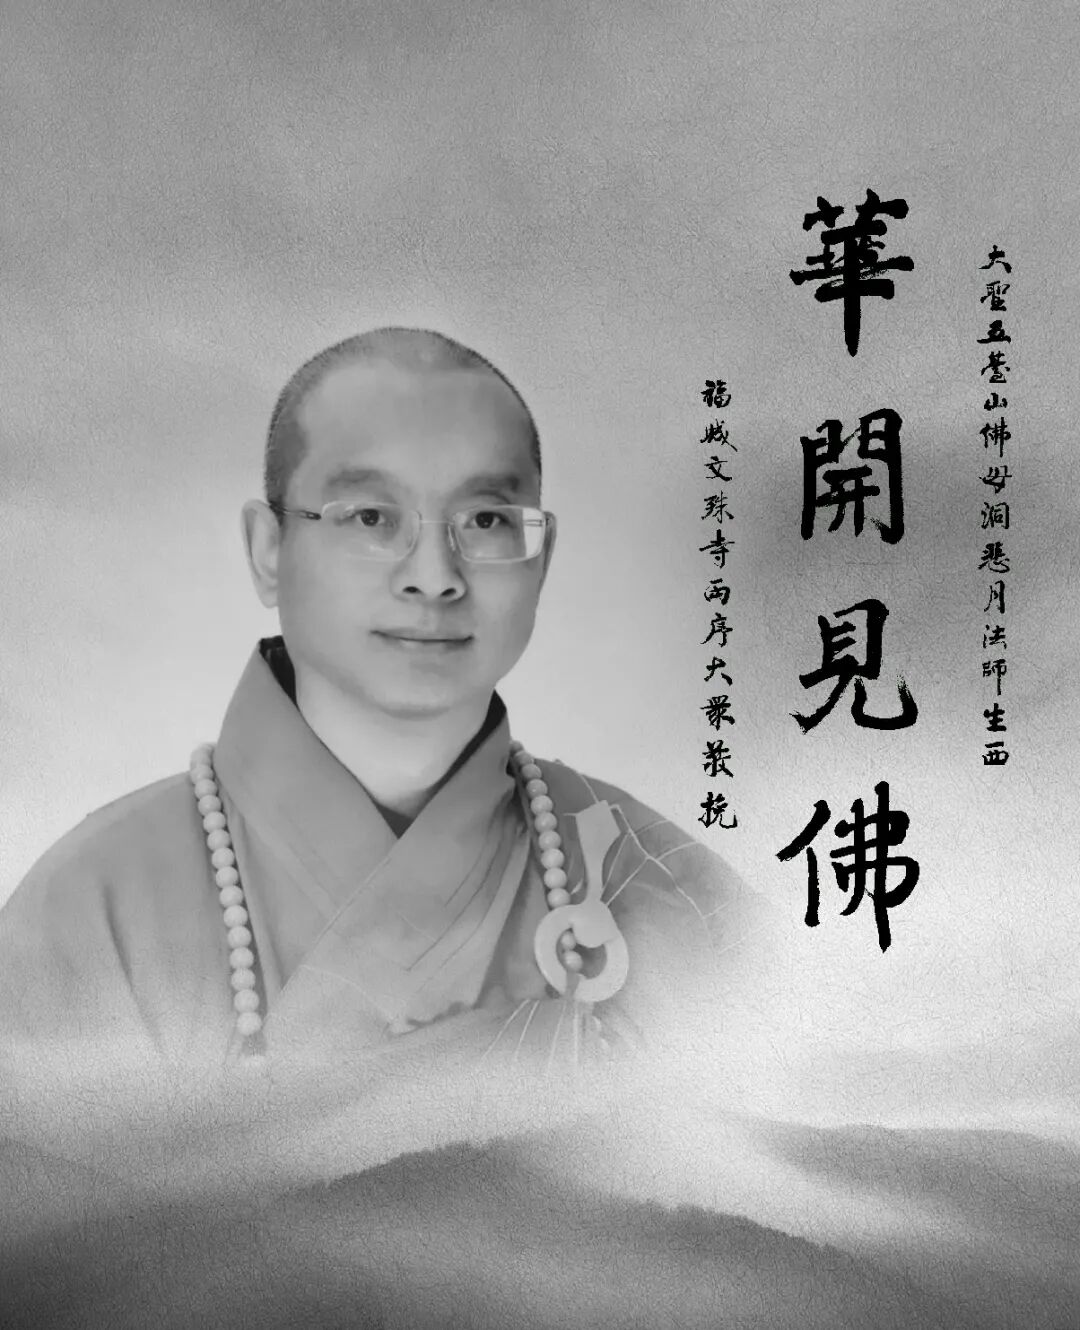 大聖五臺山佛母洞悲月法師生西
華開見佛
福城文殊寺兩序大衆敬挽